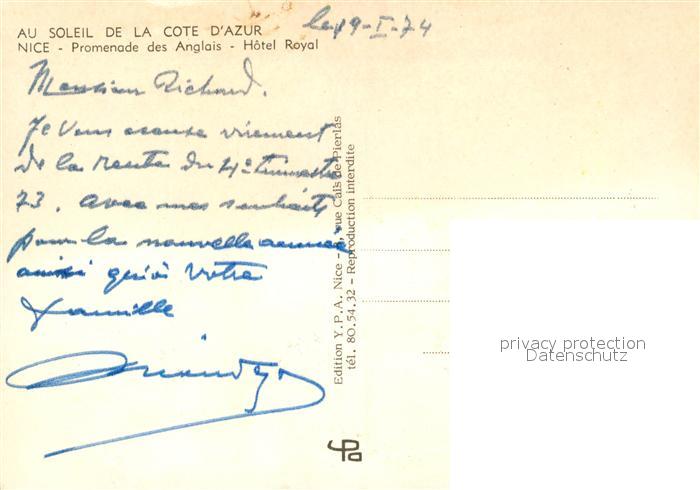 AU SOLEIL DE LA COTE D'AZUR
NICE - Promenade des Anglais - Hôtel Royal
le 19-I-74
Monsieur Richaud.
Je vous accuse virement
de la rente du 4e trimestre
73. avec mes souhaits
pour la nouvelle année
ainsi qu'à votre
famille
Edition Y.P.A. Nice - rue Cais de Pierlas
tél. 80.54.32 - Reproduction interdite
privacy protection
Datenschutz